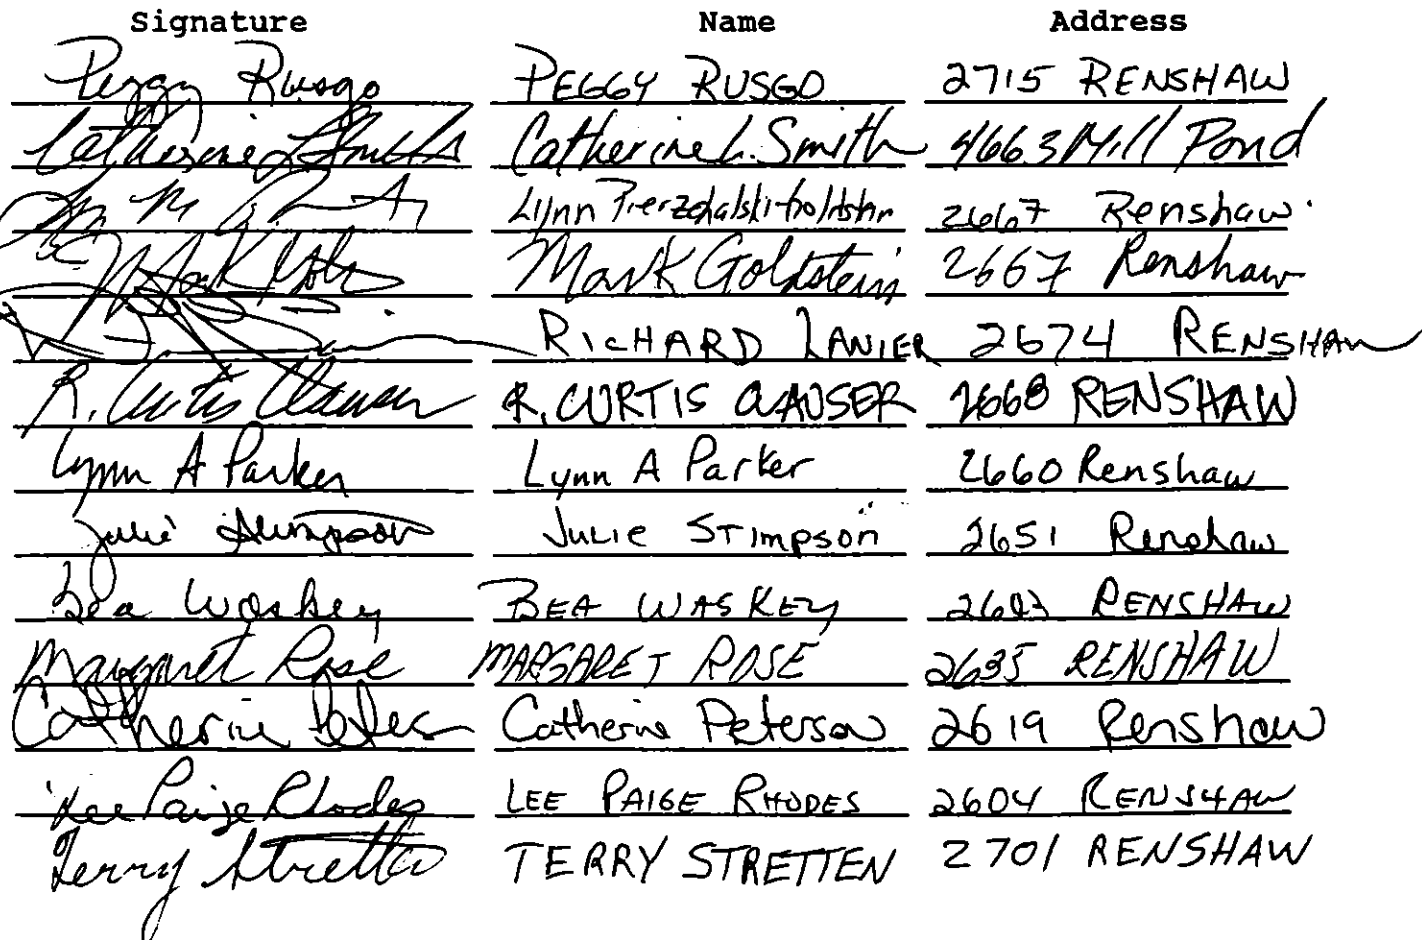 Signature Name Address
Peggy Rusgo PEGGY RUSGO 2715 RENSHAW
Catherine L Smith Catherine L. Smith 4663 Mill Pond
Lynn 2667 Renshaw
Mark Mark Goldstein 2667 Renshaw
RICHARD LANIER 2674 RENSHAW
R. Curtis Clauser R. CURTIS CLAUSER 2668 RENSHAW
Lynn A Parker Lynn A Parker 2660 Renshaw
Julie Stimpson JULIE STIMPSON 2651 Renshaw
Bea Waskey BEA WASKEY RENSHAW
Margaret Rose MARGARET ROSE 2635 RENSHAW
Catherine Peterson Catherine Peterson 2619 Renshaw
Lee Paige Rhodes LEE PAIGE RHODES 2604 RENSHAW
Terry Stretten TERRY STRETTEN 2701 RENSHAW